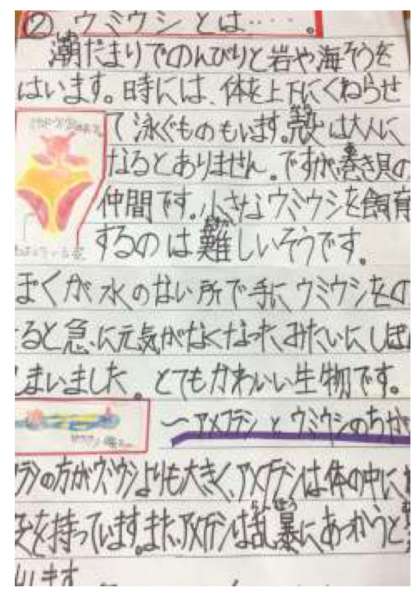 ② ウミウシとは・・・・。
潮だまりでのんびりと岩や海そうを
はいます。時には、体を上下にくねらせ
て泳ぐものもいます。殻は大人に
なるとありません。ですが、巻き貝の
仲間です。小さなウミウシを飼育
するのは難しいそうです。
ぼくが水のない所で手にウミウシをの
ると急に元気がなくなったみたいにしぼ
しまいました。とてもかわいい生物です。
〜アメフラシとウミウシのちが
ラシの方がウミウシよりも大きく、アメフラシは体の中に
を持っています。また、アメフラシは乱暴にあつかうと
します